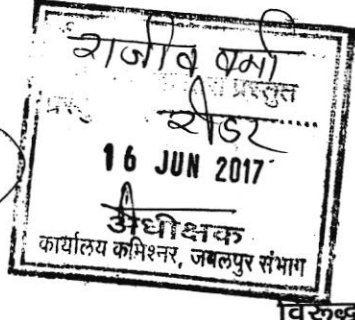 राजीव वर्मा
प्रस्तुत
रीडर
16 JUN 2017
अधीक्षक
कार्यालय कमिश्नर, जबलपुर संभाग
विरूध्द